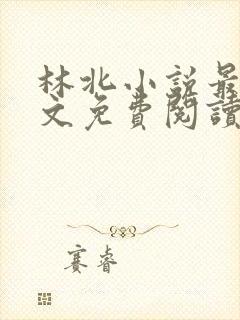 林北小說最
文免費閱讀
賽睿